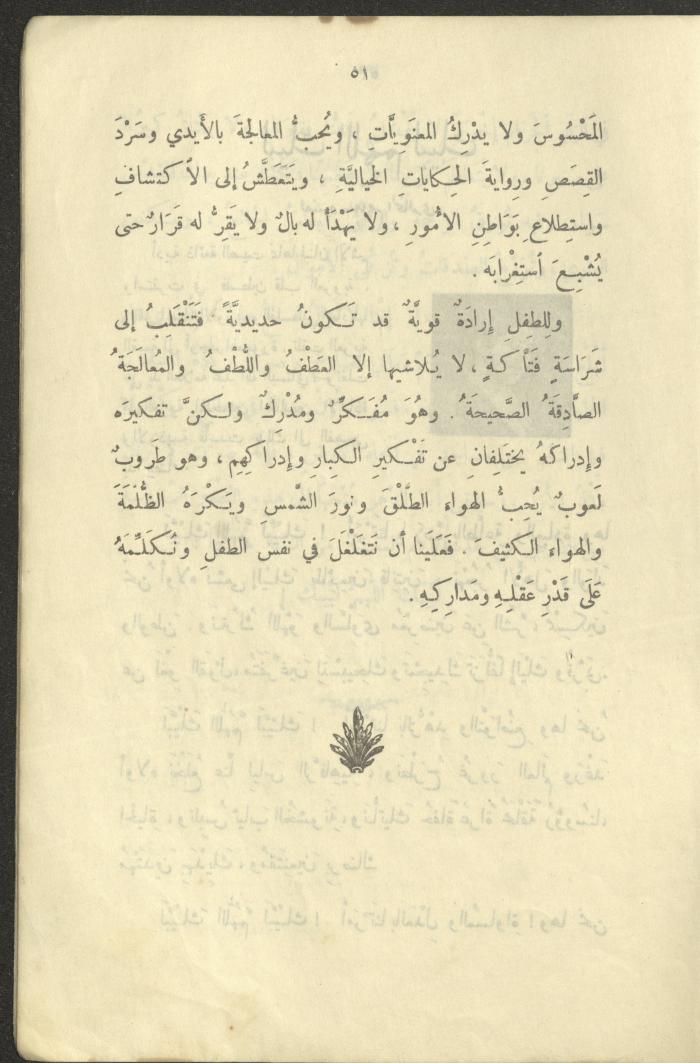 ٥١
المَحْسُوسَ ولا يدْرِكُ المعنَوِيَّاتِ ، ويُحبُّ المعالجةَ بالأَيدي وسَرْدَ
القِصَصِ ورِوايةَ الحِكاياتِ الخياليَّةِ ، ويَتَعَطَّشُ إلى الاكتشافِ
واستِطلاعِ بَوَاطِنِ الأُمورِ ، ولا يَهْدَأُ له بالٌ ولا يَقِرُّ له قَرَارٌ حتى
يُشْبِعَ اُستِغْرابَه .
وللِطفلِ إرادَةٌ قويَّةٌ قد تَكونُ حديديَّةً فتَنْقَلِبُ إلى
شَرَاسَةٍ فَتَّاكةٍ ، لا يُلاشيها إلا العَطْفُ واللُّطْفُ والمُعالَجَةُ
الصَّادِقَةُ الصَّحيحَةُ . وهُوَ مُفَكِّرٌ ومُدْرِكٌ ولكنَّ تفكيرَه
وإدراكَهُ يختَلِفانِ عن تَفْكيرِ الكِبارِ وإدراكِهِم ، وهو طَروبٌ
لَعوبٌ يُحِبُّ الهواء الطَّلْقَ ونورَ الشَّمسِ ويَكْرَهُ الظُّلْمَةَ
والهواء الكثيفَ . فَعَلَينا أن نَتَغَلْغَلَ في نفس الطفلِ ونُكَلِّمَهُ
عَلَى قَدْرِ عَقْلِهِ ومَداركِهِ .